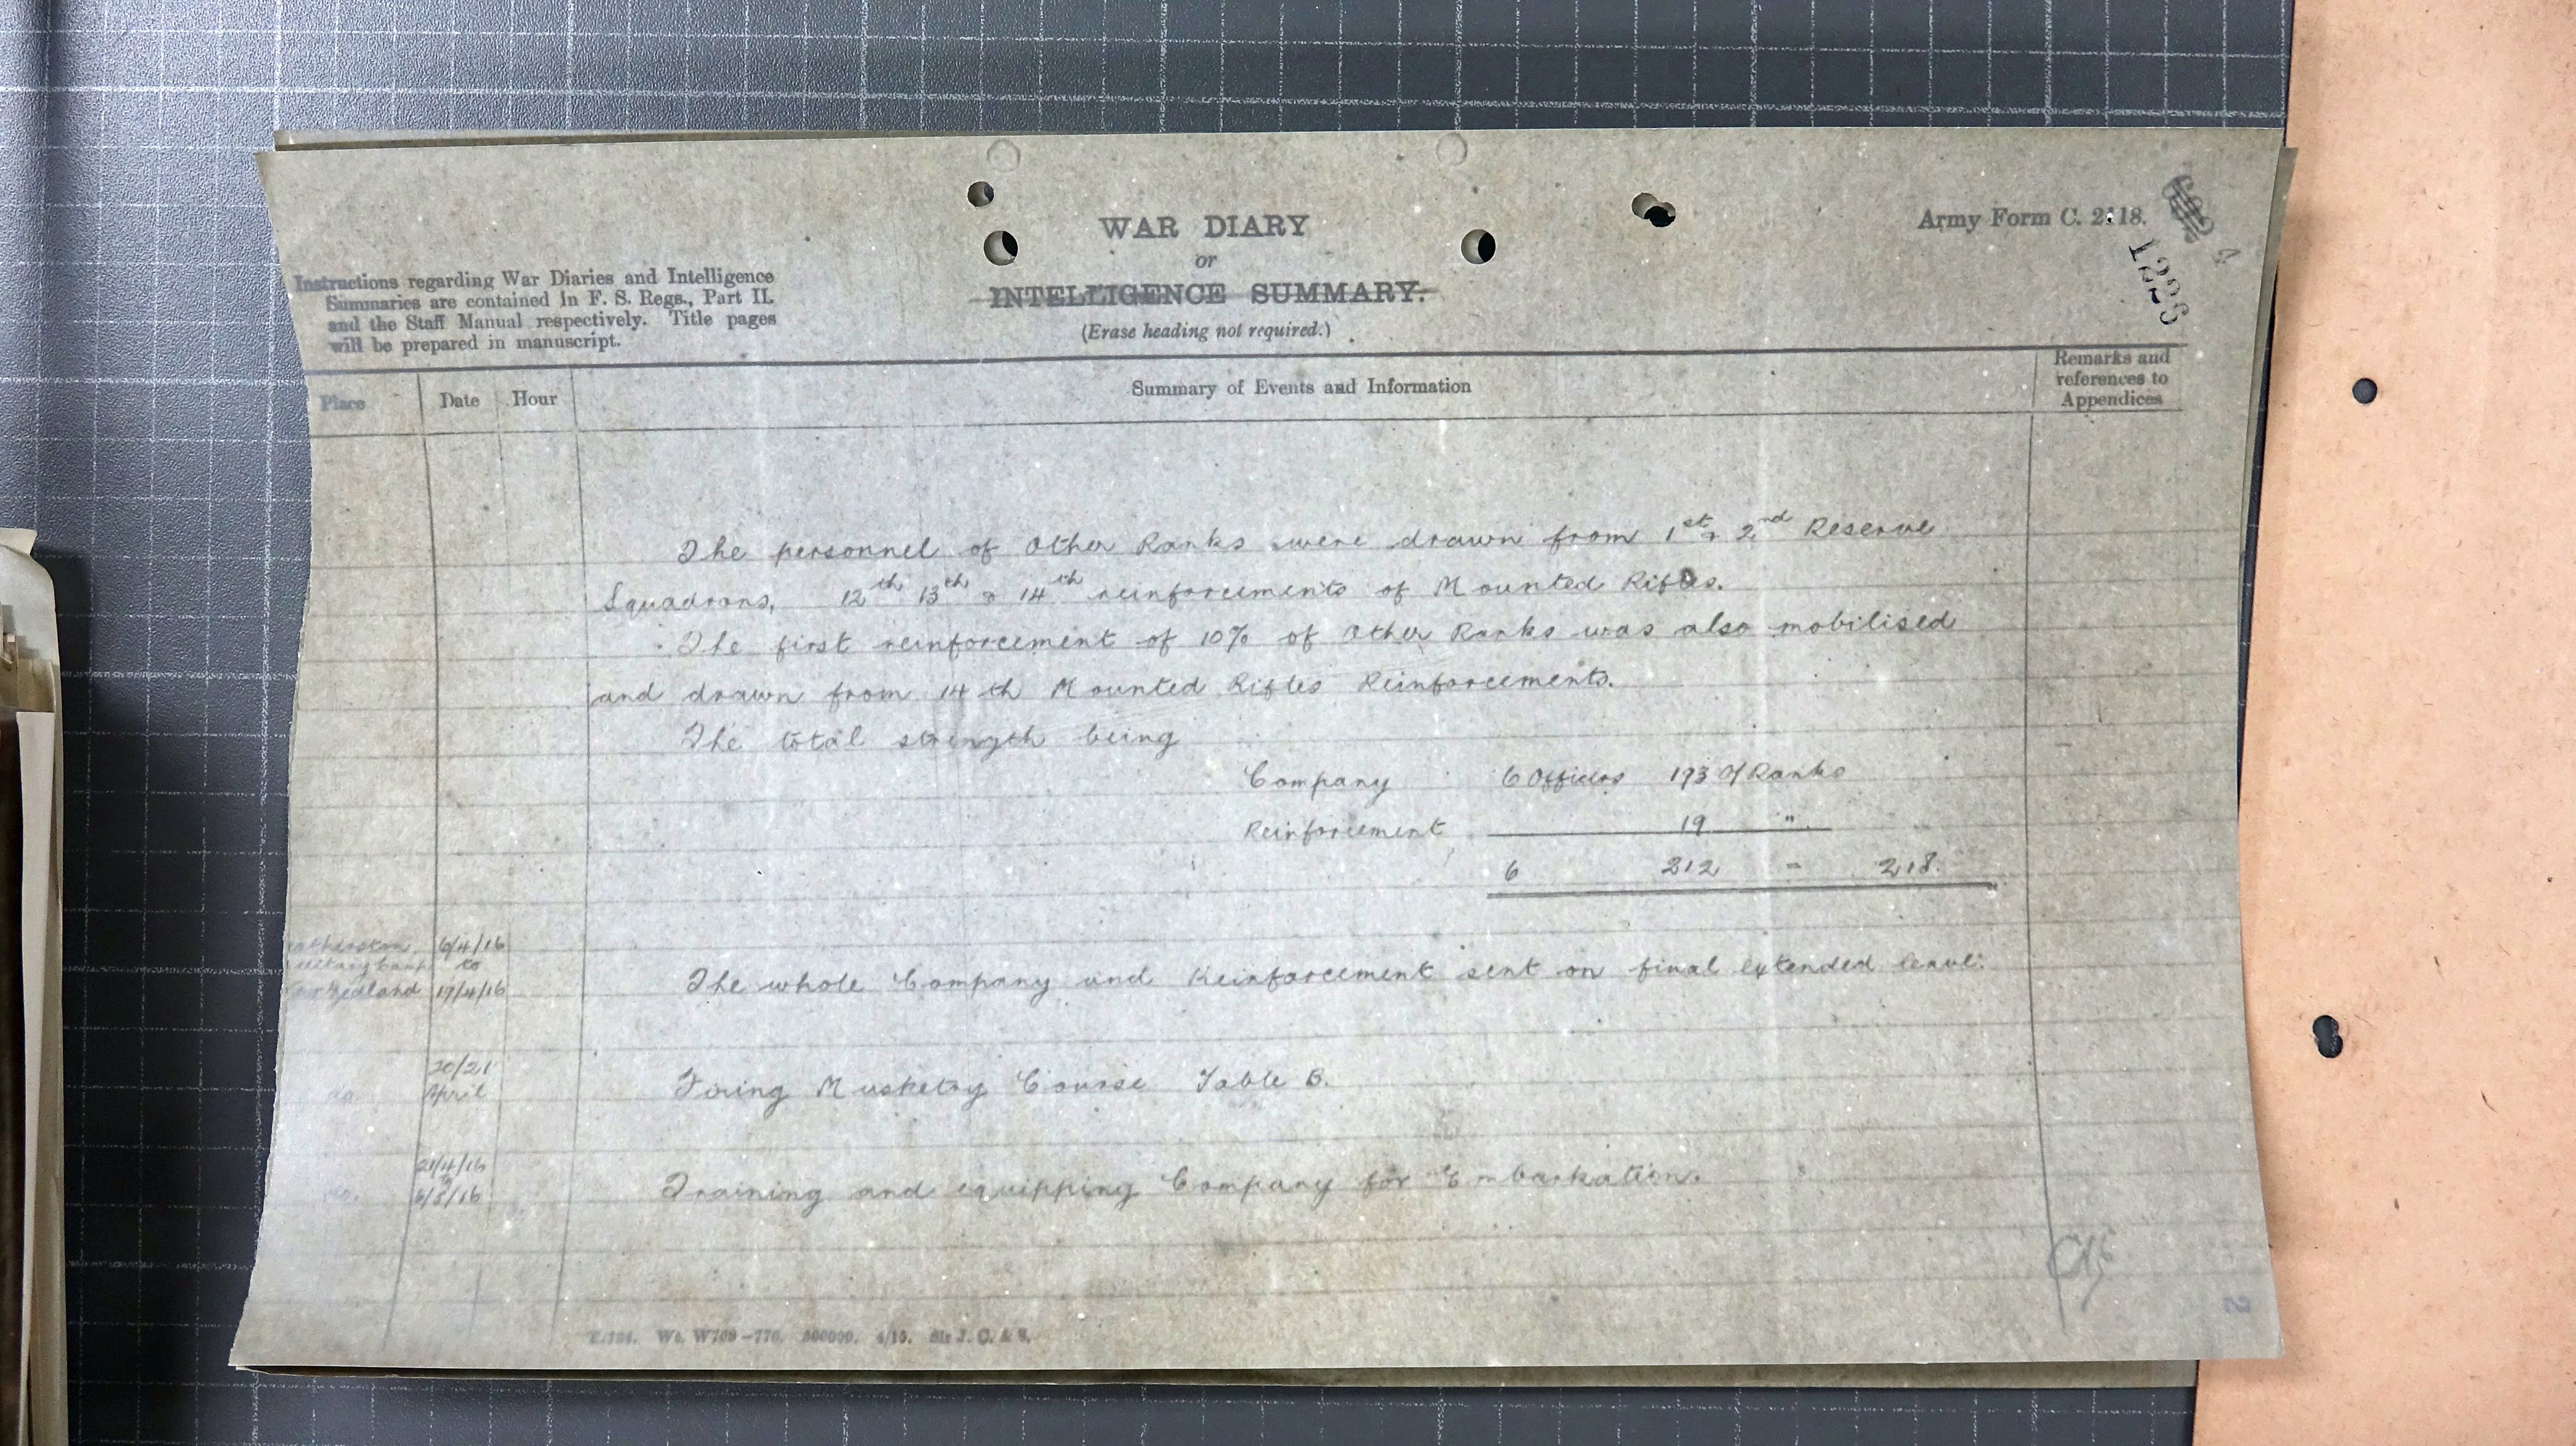 WAR DIARY
or
INTELLIGENCE SUMMARY.
(Erase heading not required.)
Army Form C. 2118.
Instructions regarding War Diaries and Intelligence
Summaries are contained in F. S. Regs., Part II.
and the Staff Manual respectively. Title pages
will be prepared in manuscript.
Place
Date
Hour
Summary of Events and Information
Remarks and
references to
Appendices
The personnel of Other Ranks were drawn from 1st & 2nd Reserve
Squadrons, 12th 13th & 14th reinforcements of Mounted Rifles.
The first reinforcement of 10% of Other Ranks was also mobilised
and drawn from 14th Mounted Rifles Reinforcements.
The total strength being
Company 6 Officers 193 O/Ranks
Reinforcement 19 "
6 212 = 218.
atherston 6/4/16
to
Zealand 19/4/16
The whole Company and Reinforcement sent on final extended leave.
do. 20/21
April
Firing Musketry Course Table B.
do. 21/4/16
to
6/5/16
Training and equipping Company for Embarkation.
2